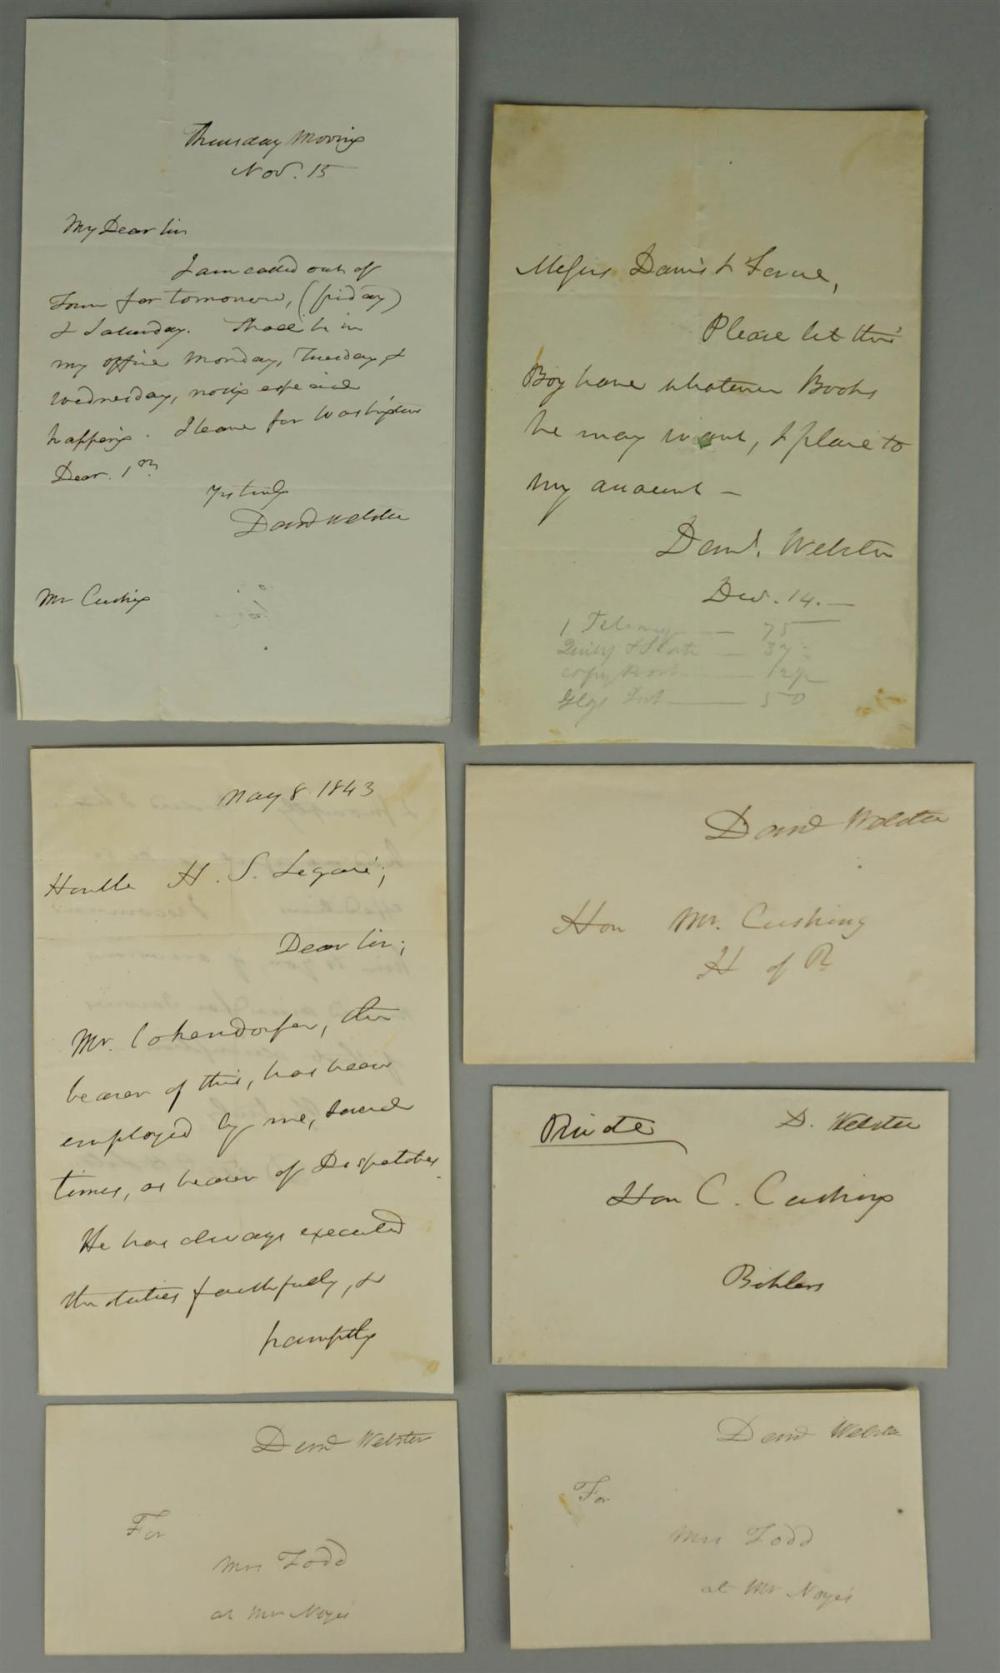 Thursday Morning
Nov. 15
My Dear Sir
I am called out of
Town for tomorrow, (friday)
& Saturday. Shall be in
my office Monday, Tuesday &
Wednesday, nothing especial
happening. I leave for Washington
Decr. 1st
Yrs truly
Danl Webster
Mr Cushing
Messrs Davis &
Please let this
Boy have whatever Books
he may want, & place to
my account —
Danl. Webster
Decr. 14. —
1 — 75
— 37
copy Book —
— 50
May 8 1843
Honble H. S. Legaré,
Dear Sir;
Mr. Cohendorfer, the
bearer of this, has been
employed by me, several
times, as bearer of Despatches.
He has always executed
the duties faithfully, &
promptly
Danl Webster
Hon Mr. Cushing
H of R
Private D. Webster
Hon C. Cushing
Danl Webster
For
Mrs Todd
at Mr Noyes
Danl Webster
For
Mrs Todd
at Mr Noyes